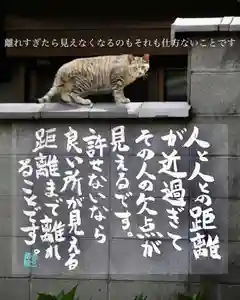 離れすぎたら見えなくなるのもそれも仕方ないことです
人と人との距離
が近過ぎて
その人の欠点が
見えるです。
許せないなら
良い所が見える
距離まで離れ
ることです。